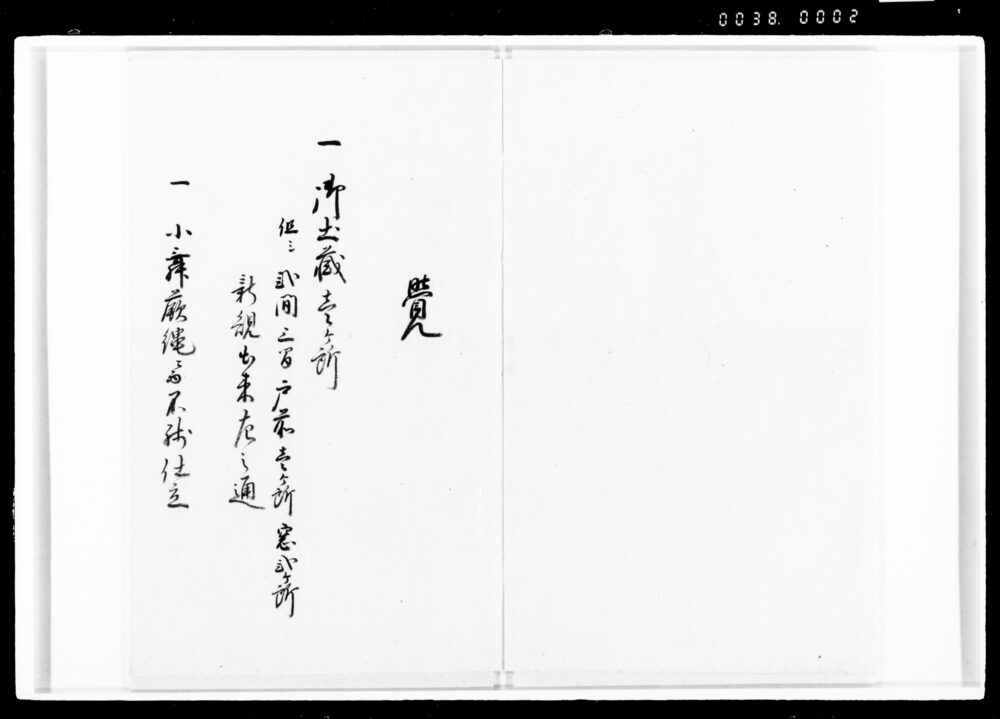 0038. 0002
覺
一 御土蔵壱ヶ所
但シ 弐間三間 戸前壱ヶ所 窓弐ヶ所
新規出来左之通
一 小舞蕨縄ニ而不残仕立